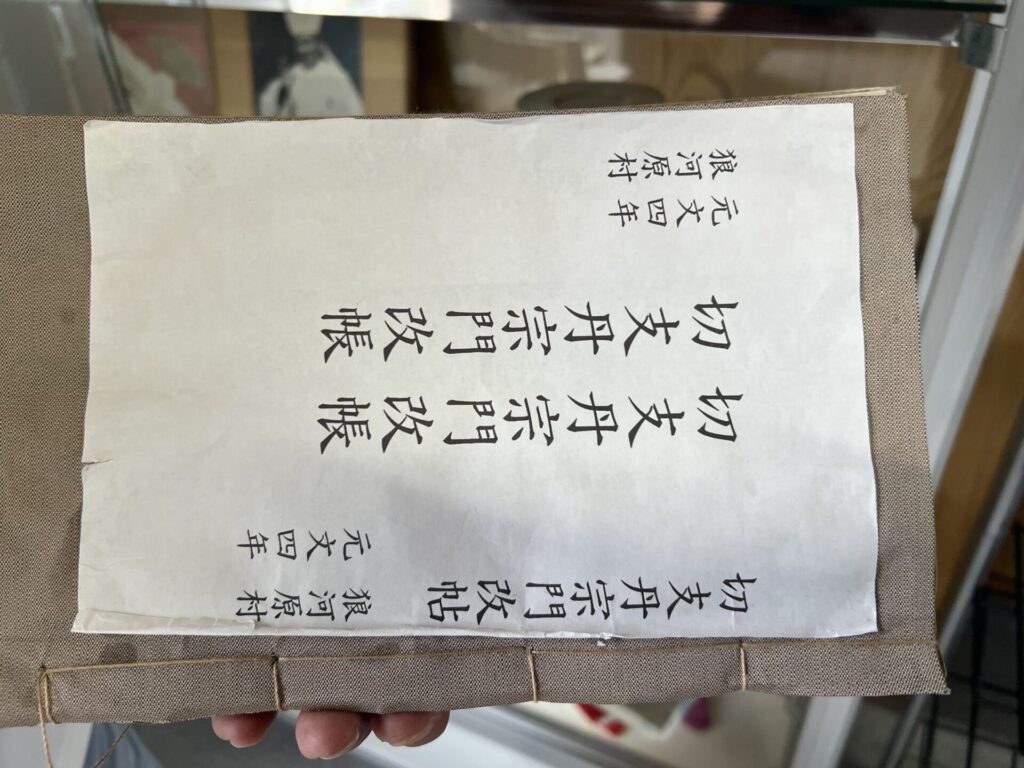 切支丹宗門改帖
狼河原村
元文四年
切支丹宗門改帳
切支丹宗門改帳
元文四年
狼河原村